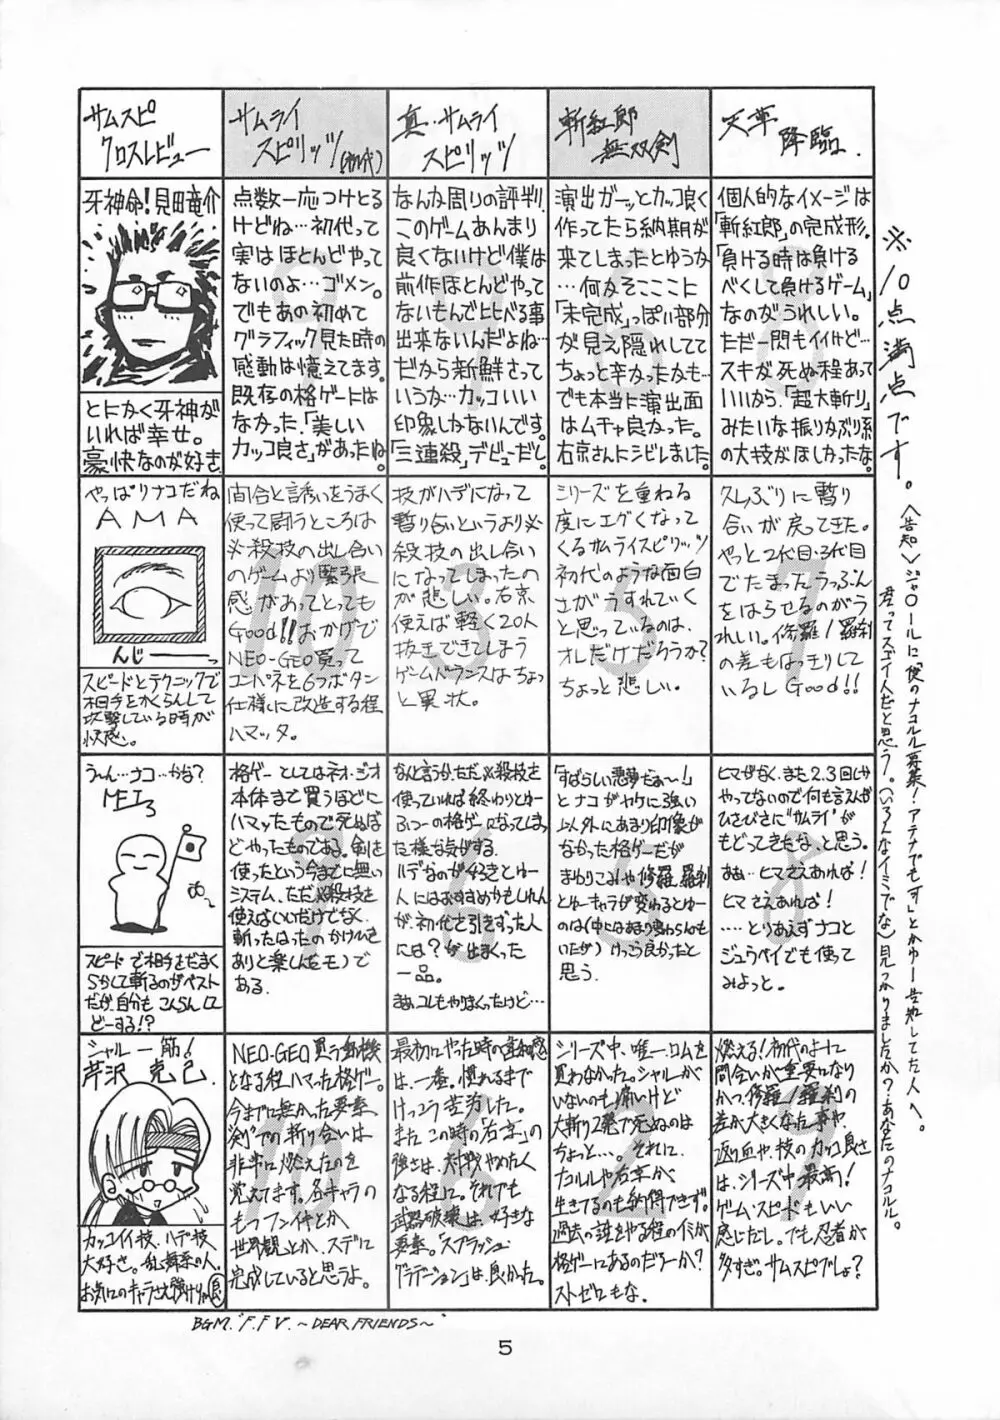 サムスピ
クロスレビュー
サムライ
スピリッツ(初代)
真・サムライ
スピリッツ
斬紅郎
無双剣
天草
降臨.
牙神命!見田竜介
とにかく牙神が
いれば幸せ。
豪快なのが好き
点数一応つけとる
けどね…初代って
実はほとんどやって
ないのよ…ゴメン。
でもあの初めて
グラフィック見た時の
感動は憶えてます。
既存の格ゲーには
なかった「美しい
カッコ良さ」があったね。
9
なんか周りの評判、
このゲームあんまり
良くないけど僕は
前作ほとんどやって
ないもんで比べる事
出来ないんだよね…
だから新鮮さって
いうか…カッコいい
印象しかないんです。
「三連殺」デビューだし。
9
演出ガーッとカッコ良く
作ってたら納期が
来てしまったとゆうか
…何かそこここに
「未完成」っぽい部分
が見え隠れしてて
ちょっと辛かったかも…
でも本当に演出面
はムチャ良かった。
右京さんにシビレました。
6
個人的なイメージは
「斬紅郎」の完成形。
「負ける時は負ける
べくして負けるゲーム」
なのがうれしい。
ただ一閃もイイけど…
スキが死ぬ程あって
いいから、「超大斬り」
みたいな振りかぶり系
の大技がほしかったな。
8
やっぱりナコだね
AMA
んじーーっ
スピードとテクニックで
相手をかくらんして
攻撃している時が
快感。
間合と誘いをうまく
使って闘うところは
必殺技の出し合い
のゲームより緊張
感があってとっても
Good!!おかげで
NEO-GEO買って
コンパネを6つボタン
仕様に改造する程
ハマッタ。
10
技がハデになって
斬り合いというより必
殺技の出し合い
になってしまったの
が悲しい。右京
使えば軽く20人
抜きできてしまう
ゲームバランスはちょっ
と異状。
3
シリーズを重ねる
度にエグくなって
くるサムライスピリッツ
初代のような面白
さがうすれていく
と思っているのは、
オレだけだろうか?
ちょっと悲しい。
5
久しぶりに斬り
合いが戻ってきた。
やっと2代目、3代目
でたまったうっぷん
をはらせるのがう
れしい。修羅/羅刹
の差もはっきりして
いるしGood!!
7
う〜ん…ナコ…かな?
MEI3
スピードで相手をだまく
らかして斬るのがベスト
だが、自分もこんらんして
どーする!?
格ゲーとしてはネオ・ジオ
本体まで買うほどに
ハマッたもので死ぬほ
どやったものである。剣を
使ったという今までに無い
システム、ただ必殺技を
使えばいいだけでなく、
斬ったはったのかけひき
ありと楽しんだモノで
ある。
9
なんと言うか、ただ必殺技を
使っていれば終わりとゆー
ふつーの格ゲーになってしまっ
た様な気がする.
ハデなのが好きとゆー
人にはおすすめかもしれん
が、初代を引きずった人
には?が出まくった
一品。
まぁ、コレもやりまくったけど…
6
「すばらしい悪夢だぁ〜!」
とナコがヤケに強い
以外にあまり印象が
なかった格ゲーだが
まわりこみや修羅、羅刹
とゆーキャラが変わるとゆー
のは(中にはあまり変わらんも
いたが)けっこう良かったと
思う。
5
ヒマがなく、また2.3回しか
やってないので何も言えんが
ひさびさに"サムライ"が
もどってきたな、と思う。
まぁ…ヒマさえあれば!
ヒマさえあれば!
……とりあえずナコと
ジュウベイでも使って
みよっと。
8
シャルー筋!
芹沢克己.
カッコイイ技、ハデな技
大好き。乱舞系の人。
お気に入りのキャラさえ強けりゃ良
NEO-GEO買う動機
となる程ハマった格ゲー。
今までに無かった要素
「剣」での斬り合いは
非常に燃えたのを
覚えてます。各キャラの
もつフンイキとか
世界観とか、スデに
完成していると思うよ。
10
最初にやった時の違和感
は、一番。慣れるまで
けっこう苦労した。
またこの時の「右京」の
強さは、対戦やめたく
なる程に。それでも
武器破壊は、好きな
要素。「スプラッシュ・
グラデーション」は、良かった。
6
シリーズ中、唯一、ロムを
買わなかった。シャルーが
いないのも痛いけど
大斬り2発で死ぬのは
ちょっと…。それに、
ナコルルや右京が
生きてるのも納得できず。
過去の話をやる程のイミが
格ゲーにあるのだろーか?
ストゼロもな.
2
燃える!初代のように
間合いが重要になり
かつ、修羅/羅刹の
差が大きくなった事や、
返り血や、技のカッコ良さ
は、シリーズ中、最高!
ゲーム・スピードもいい
感じだし。でも、忍者が
多すぎ。サムスピでしょ?
9
※10点満点です。
〈告知〉ジャ○ールに「使のナコルル募集!アテナでも可」とかゆー告知してた人へ。
君ってスゴイ人だと思う。(いろんなイミでな)見つかりましたか?あなたのナコルル。
BGM.「F.F.V. 〜DEAR FRIENDS〜」
5